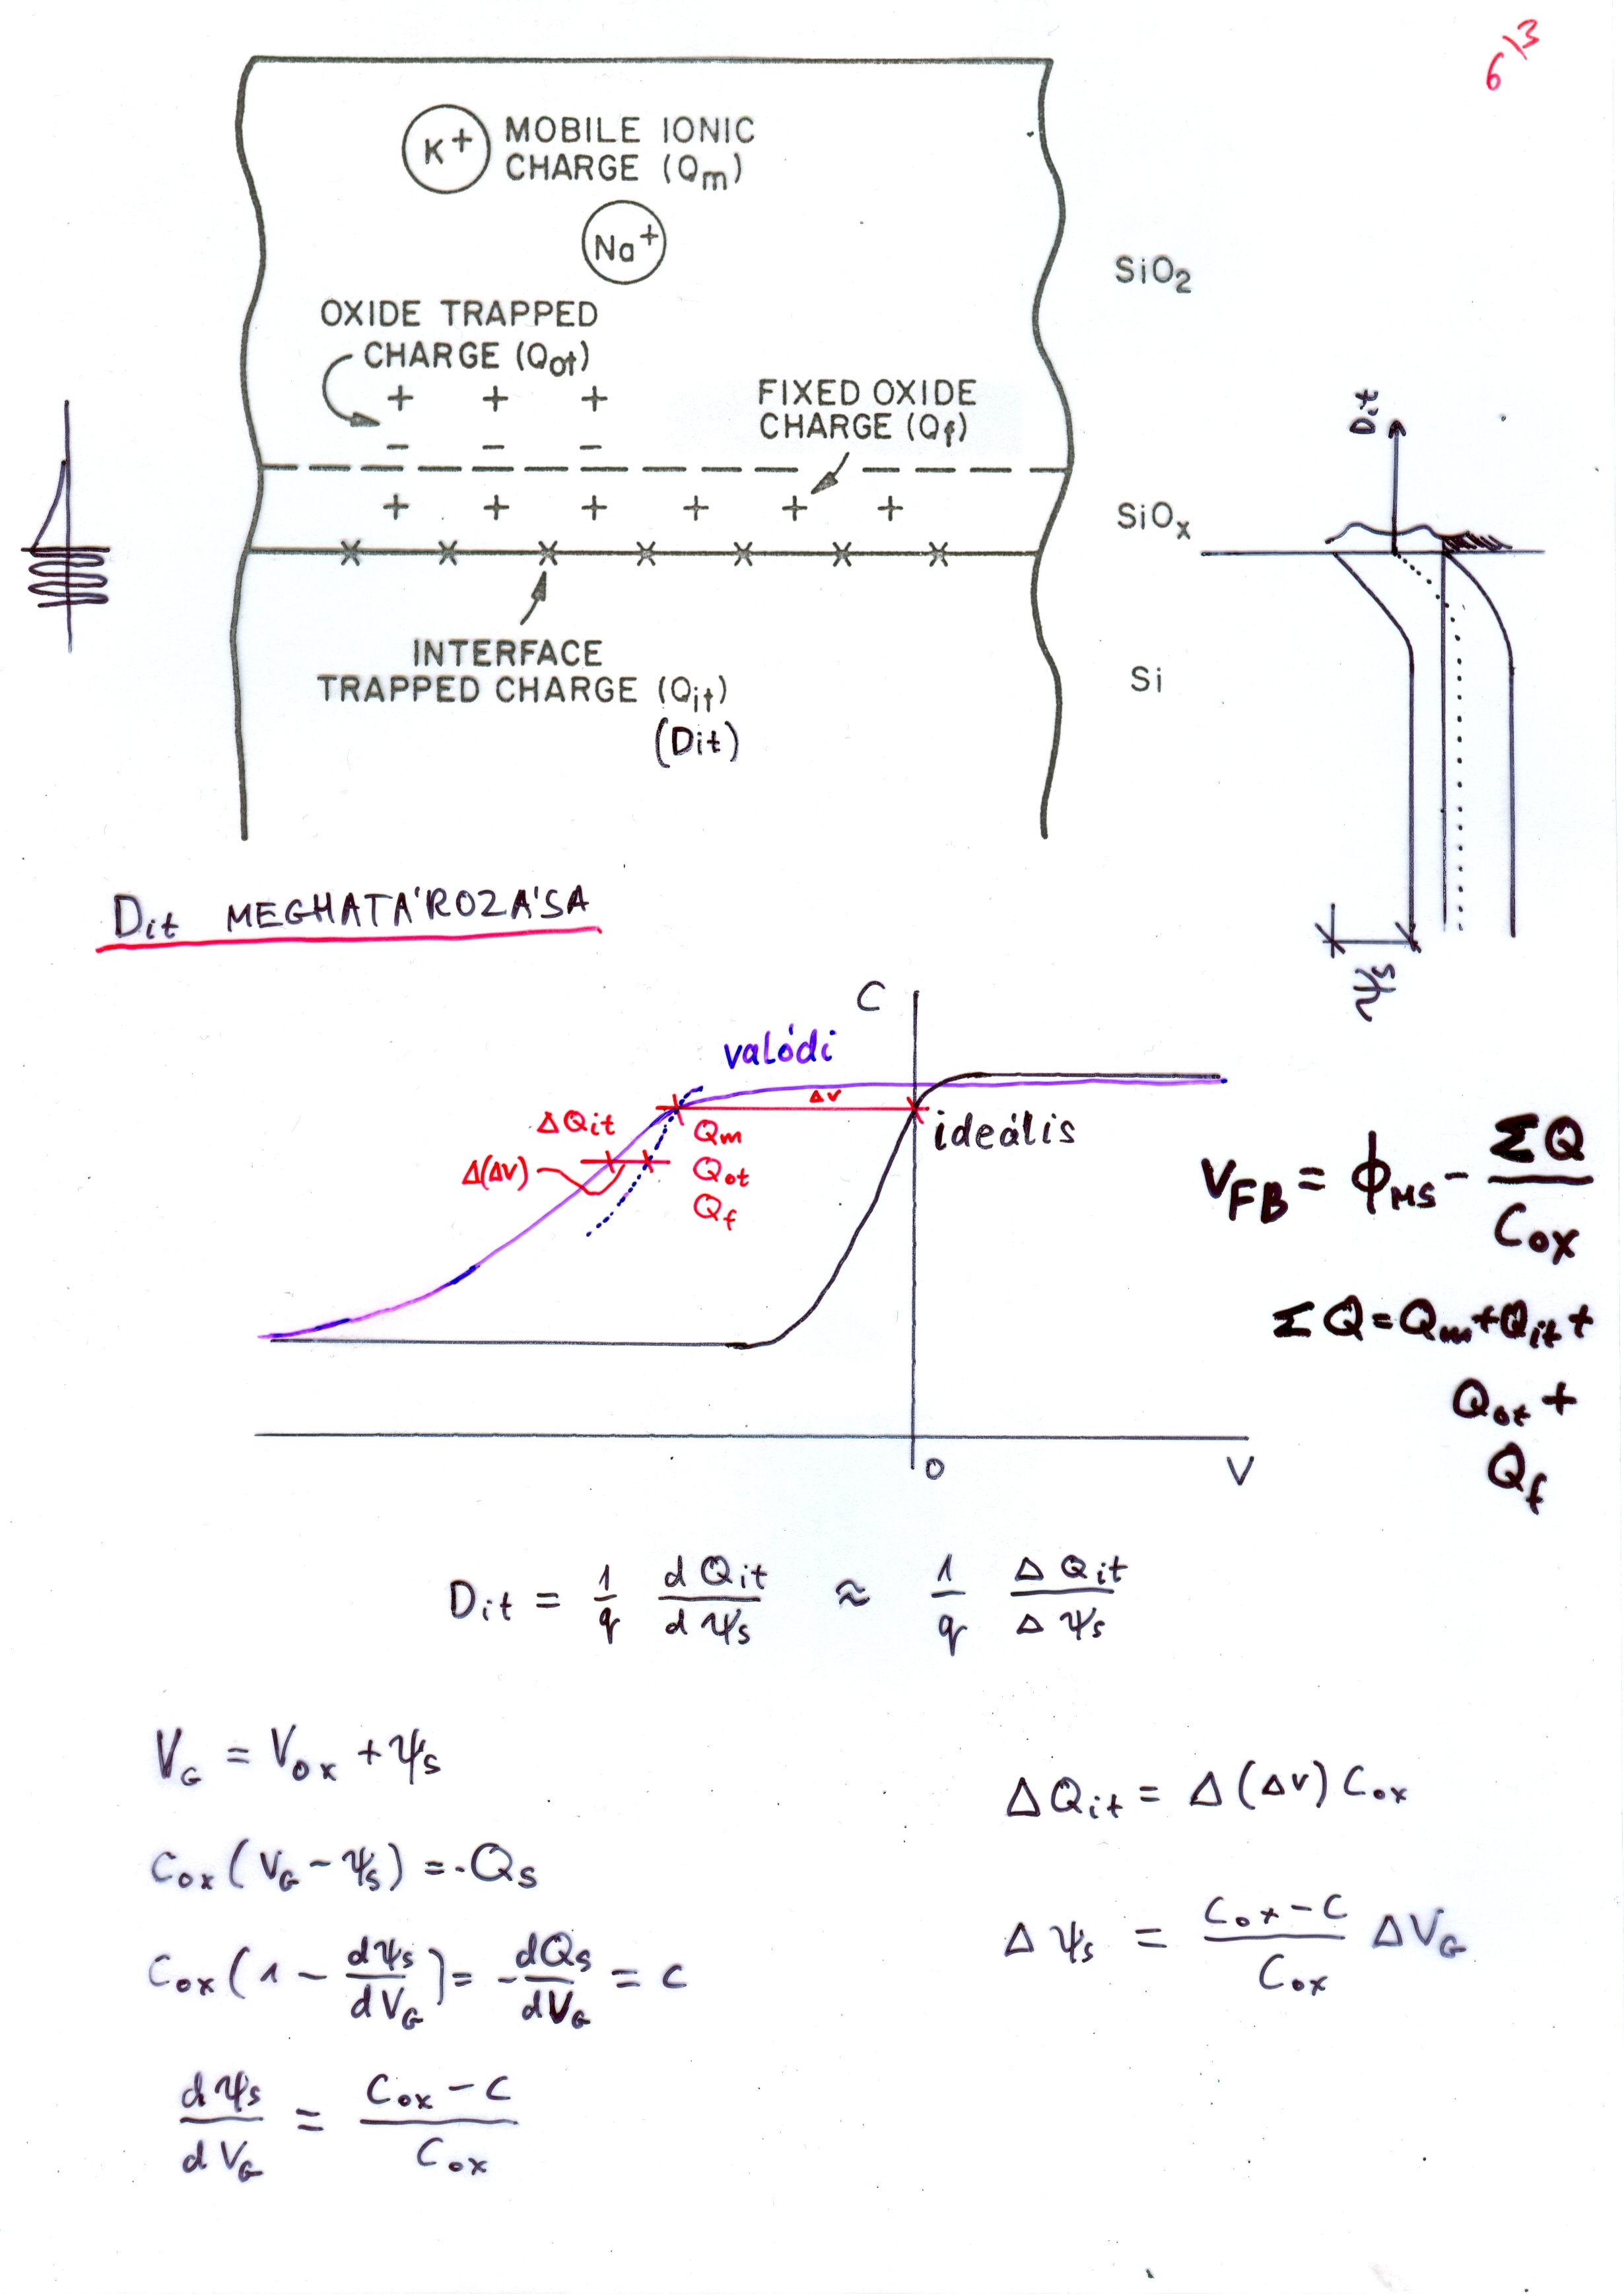 6\3
K+ MOBILE IONIC
CHARGE (Qm)
Na+
SiO2
OXIDE TRAPPED
CHARGE (Qot)
+ + +
− − −
FIXED OXIDE
CHARGE (Qf)
Dit
+ + + + + +
SiOx
× × × × × × ×
INTERFACE
TRAPPED CHARGE (Qit)
(Dit)
Si
Ψs
Dit MEGHATÁROZÁSA
C
valódi
Δv
ideális
ΔQit
Δ(Δv)
Qm
Qot
Qf
0
V
VFB = ϕMS − ΣQ/Cox
ΣQ = Qm + Qit +
Qot +
Qf
Dit = 1/q dQit/dΨs ≈ 1/q ΔQit/ΔΨs
VG = Vox + Ψs
Cox(VG − Ψs) = −Qs
Cox(1 − dΨs/dVG) = −dQs/dVG = C
dΨs/dVG = Cox − C/Cox
ΔQit = Δ(Δv) Cox
ΔΨs = Cox − C/Cox ΔVG